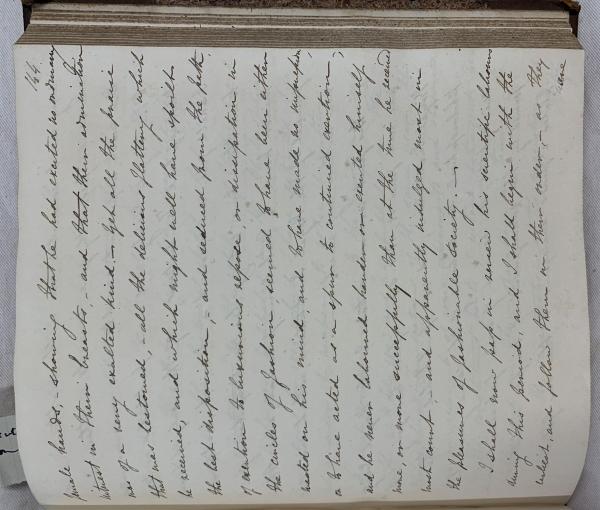 164.
female hands, - showing that he had excited no ordinary
interest in their breasts, - and that their admiration
was of a very exalted kind. - Yet all the praise
that was bestowed, - all the delicious flattery which
he received, and which might well have spoilt
the best disposition, - and seduced from the path
of exertion to luxurious repose, or dissipation in
the circles of fashion, seemed to have been either
wasted on his mind, and to have made no impression,
or to have acted as a spur to continued exertion;
and he never laboured harder or exerted himself
more, or more successfully than at the time he received
most court, - and apparently indulged most in
the pleasures of fashionable society. -
I shall now pass in review his scientific labours
during this period, and I shall begin with the
and follow them in their order, - as they
were